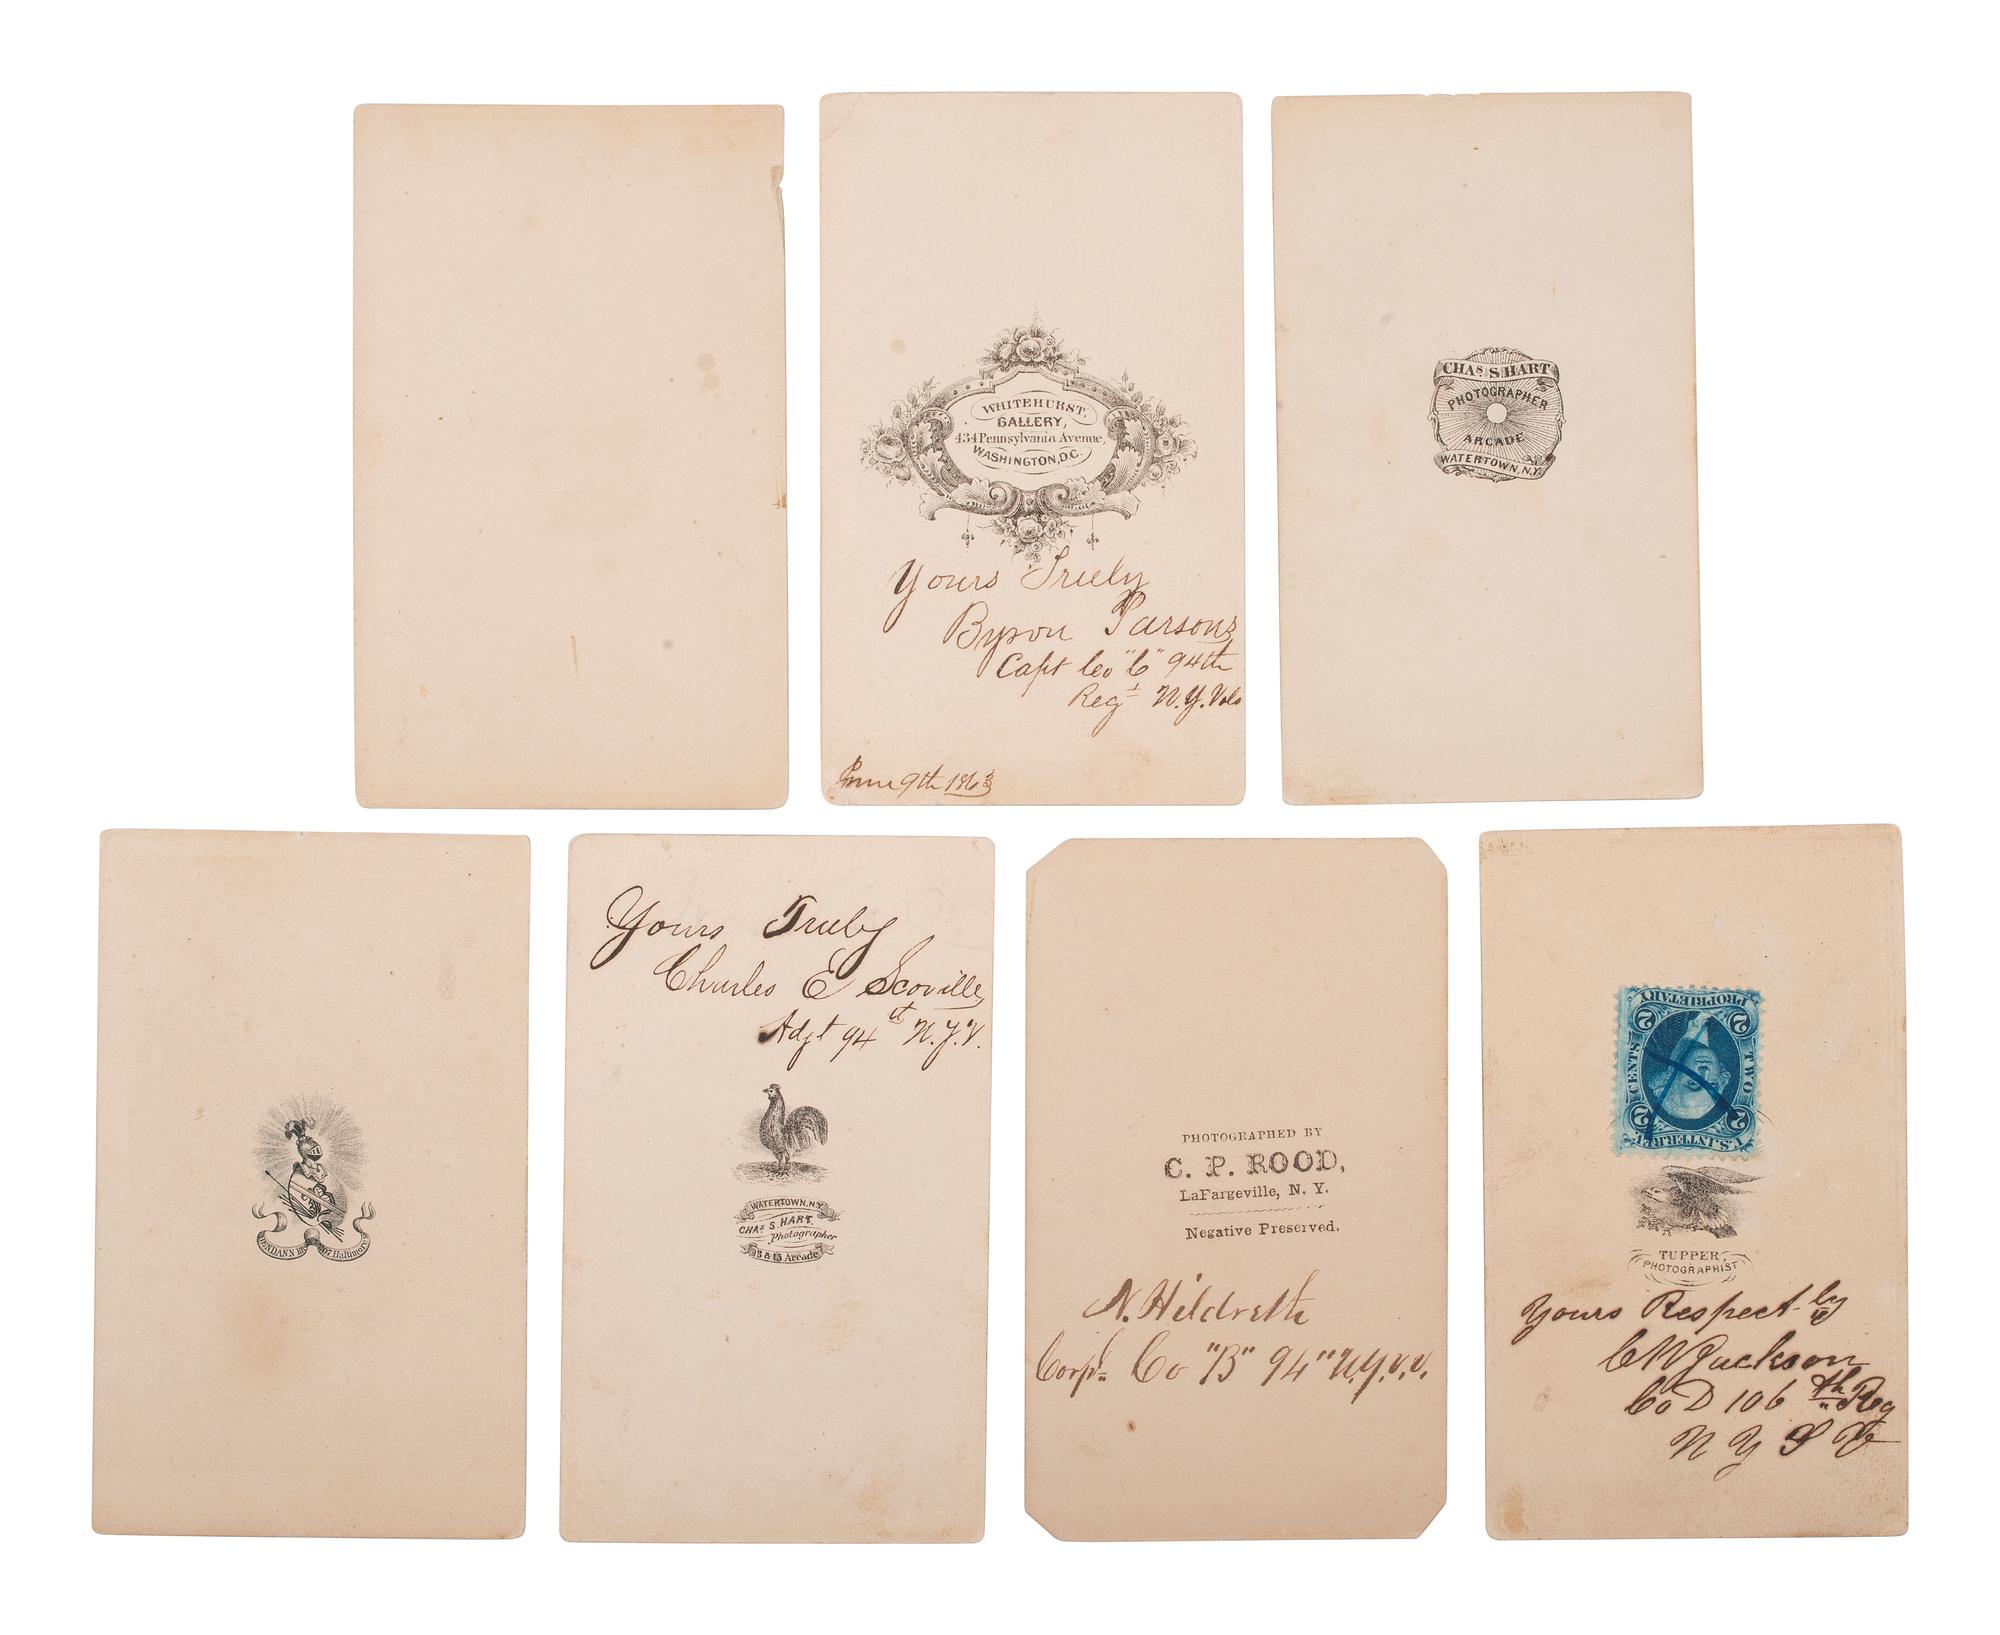 WHITEHURST.
GALLERY,
434 Pennsylvania Avenue,
WASHINGTON, D.C.
Yours Truly
Byron Parsons
Capt Co "C" 94th
Regt N.Y. Vols
June 9th 1863
CHAS S HART
PHOTOGRAPHER
ARCADE
WATERTOWN, N.Y.
BENDANN BR 207 Baltimore
Yours Truly
Charles E Scoville
Adjt 94th N.Y.V.
WATERTOWN, N.Y.
CHAS S. HART.
Photographer
13 & 15 Arcade
PHOTOGRAPHED BY
C. P. ROOD,
LaFargeville, N. Y.
Negative Preserved.
N. Hildreth
Corpl Co "B" 94" N.Y.V.V.
PROPRIETARY
2 2
CENTS TWO
2 2
U.S. INTER. REV.
TUPPER,
PHOTOGRAPHIST
Yours Respect-ly
C W Jackson
Co D 106th Reg
N Y S V